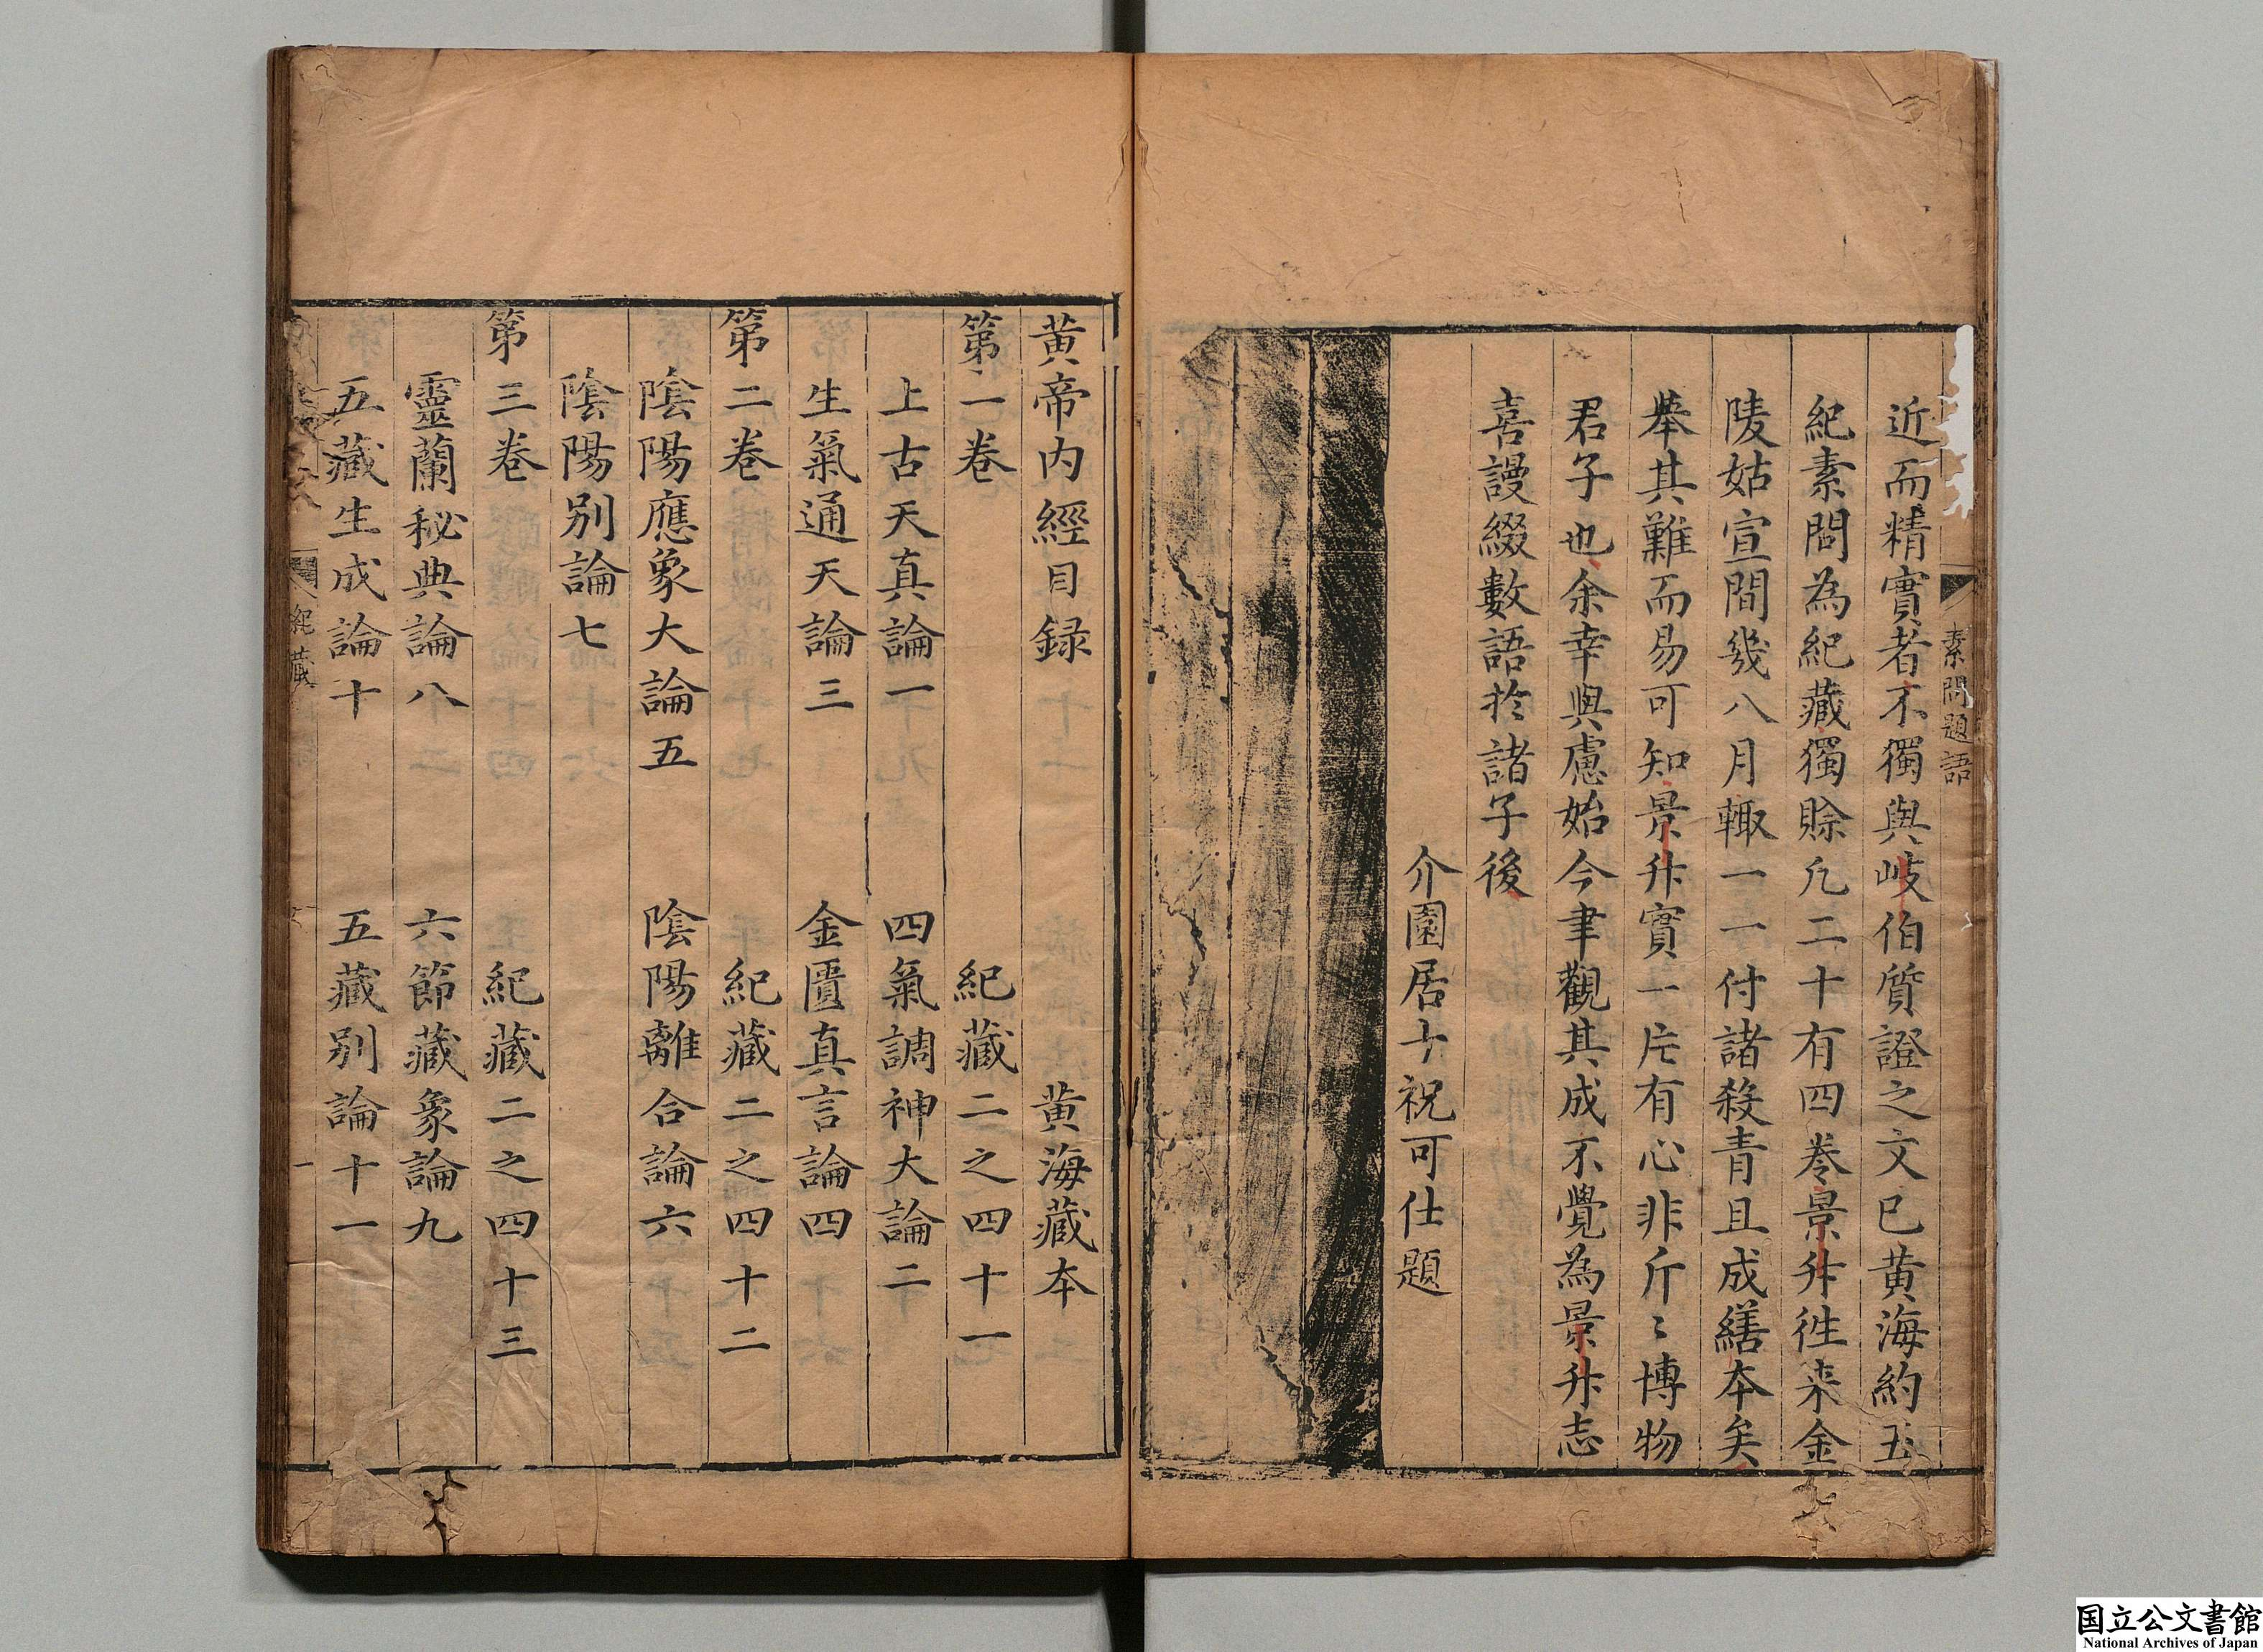 素問題語
近而精實者不獨與岐伯質證之文已黄海約五
紀素問為紀紀藏獨賒凢二十有四卷景升徃来金
陵姑宣間幾八月輙一一付諸殺青且成繕本矣
舉其難而易可知景升實一片有心非斤〻博物
君子也余幸與慮始今聿觀其成不覺為景升志
喜謾綴數語扵諸子後
介園居士祝可仕題
黄帝内經目録 黄海藏本
第一卷 紀藏二之四十一
上古天真論一 四氣調神大論二
生氣通天論三 金匱真言論四
第二卷 紀藏二之四十二
陰陽應象大論五 陰陽離合論六
陰陽别論七
第三卷 紀藏二之四十三
靈蘭秘典論八 六節藏象論九
五藏生成論十 五藏别論十一
紀藏 一
国立公文書館
National Archives of Japan